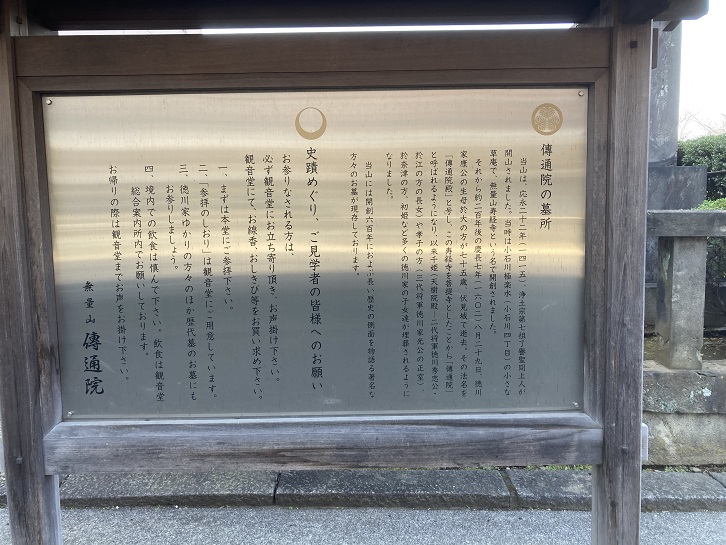 傳通院の墓所
当山は、応永二十二年(一四一五)、浄土宗第七祖了誉聖冏上人が
開山されました。当時は小石川極楽水(小石川四丁目)の小さな
草庵で、無量山寿経寺という名で開創されました。
それから約二百年後の慶長七年(一六〇二)八月二十九日、徳川
家康公の生母於大の方が七十五歳、伏見城で逝去。その法名を
「傳通院殿」と号し、この寿経寺を菩提寺としたことから「傳通院」
と呼ばれるようになり、以来千姫(天樹院殿―二代将軍徳川秀忠公・
於江の方の長女)や孝子の方(三代将軍徳川家光公の正室)、
於奈津の方、初姫など多くの徳川家の子女達が埋葬されるように
なりました。
当山には開創六百年におよぶ長い歴史の側面を物語る著名な
方々のお墓が現存しております。
史蹟めぐり、ご見学者の皆様へのお願い
お参りなされる方は、
必ず観音堂にお立ち寄り頂き、お声掛け下さい。
観音堂にて、お線香・おしきび等をお買い求め下さい。
一、まずは本堂にご参拝下さい。
二、「参拝のしおり」は観音堂にご用意しています。
三、徳川家ゆかりの方々のほか歴代墓のお墓にも
お参りしましょう。
四、境内での飲食は慎んで下さい。飲食は観音堂
総合案内所内でお願いしております。
お帰りの際は観音堂までお声をお掛け下さい。
無量山 傳通院